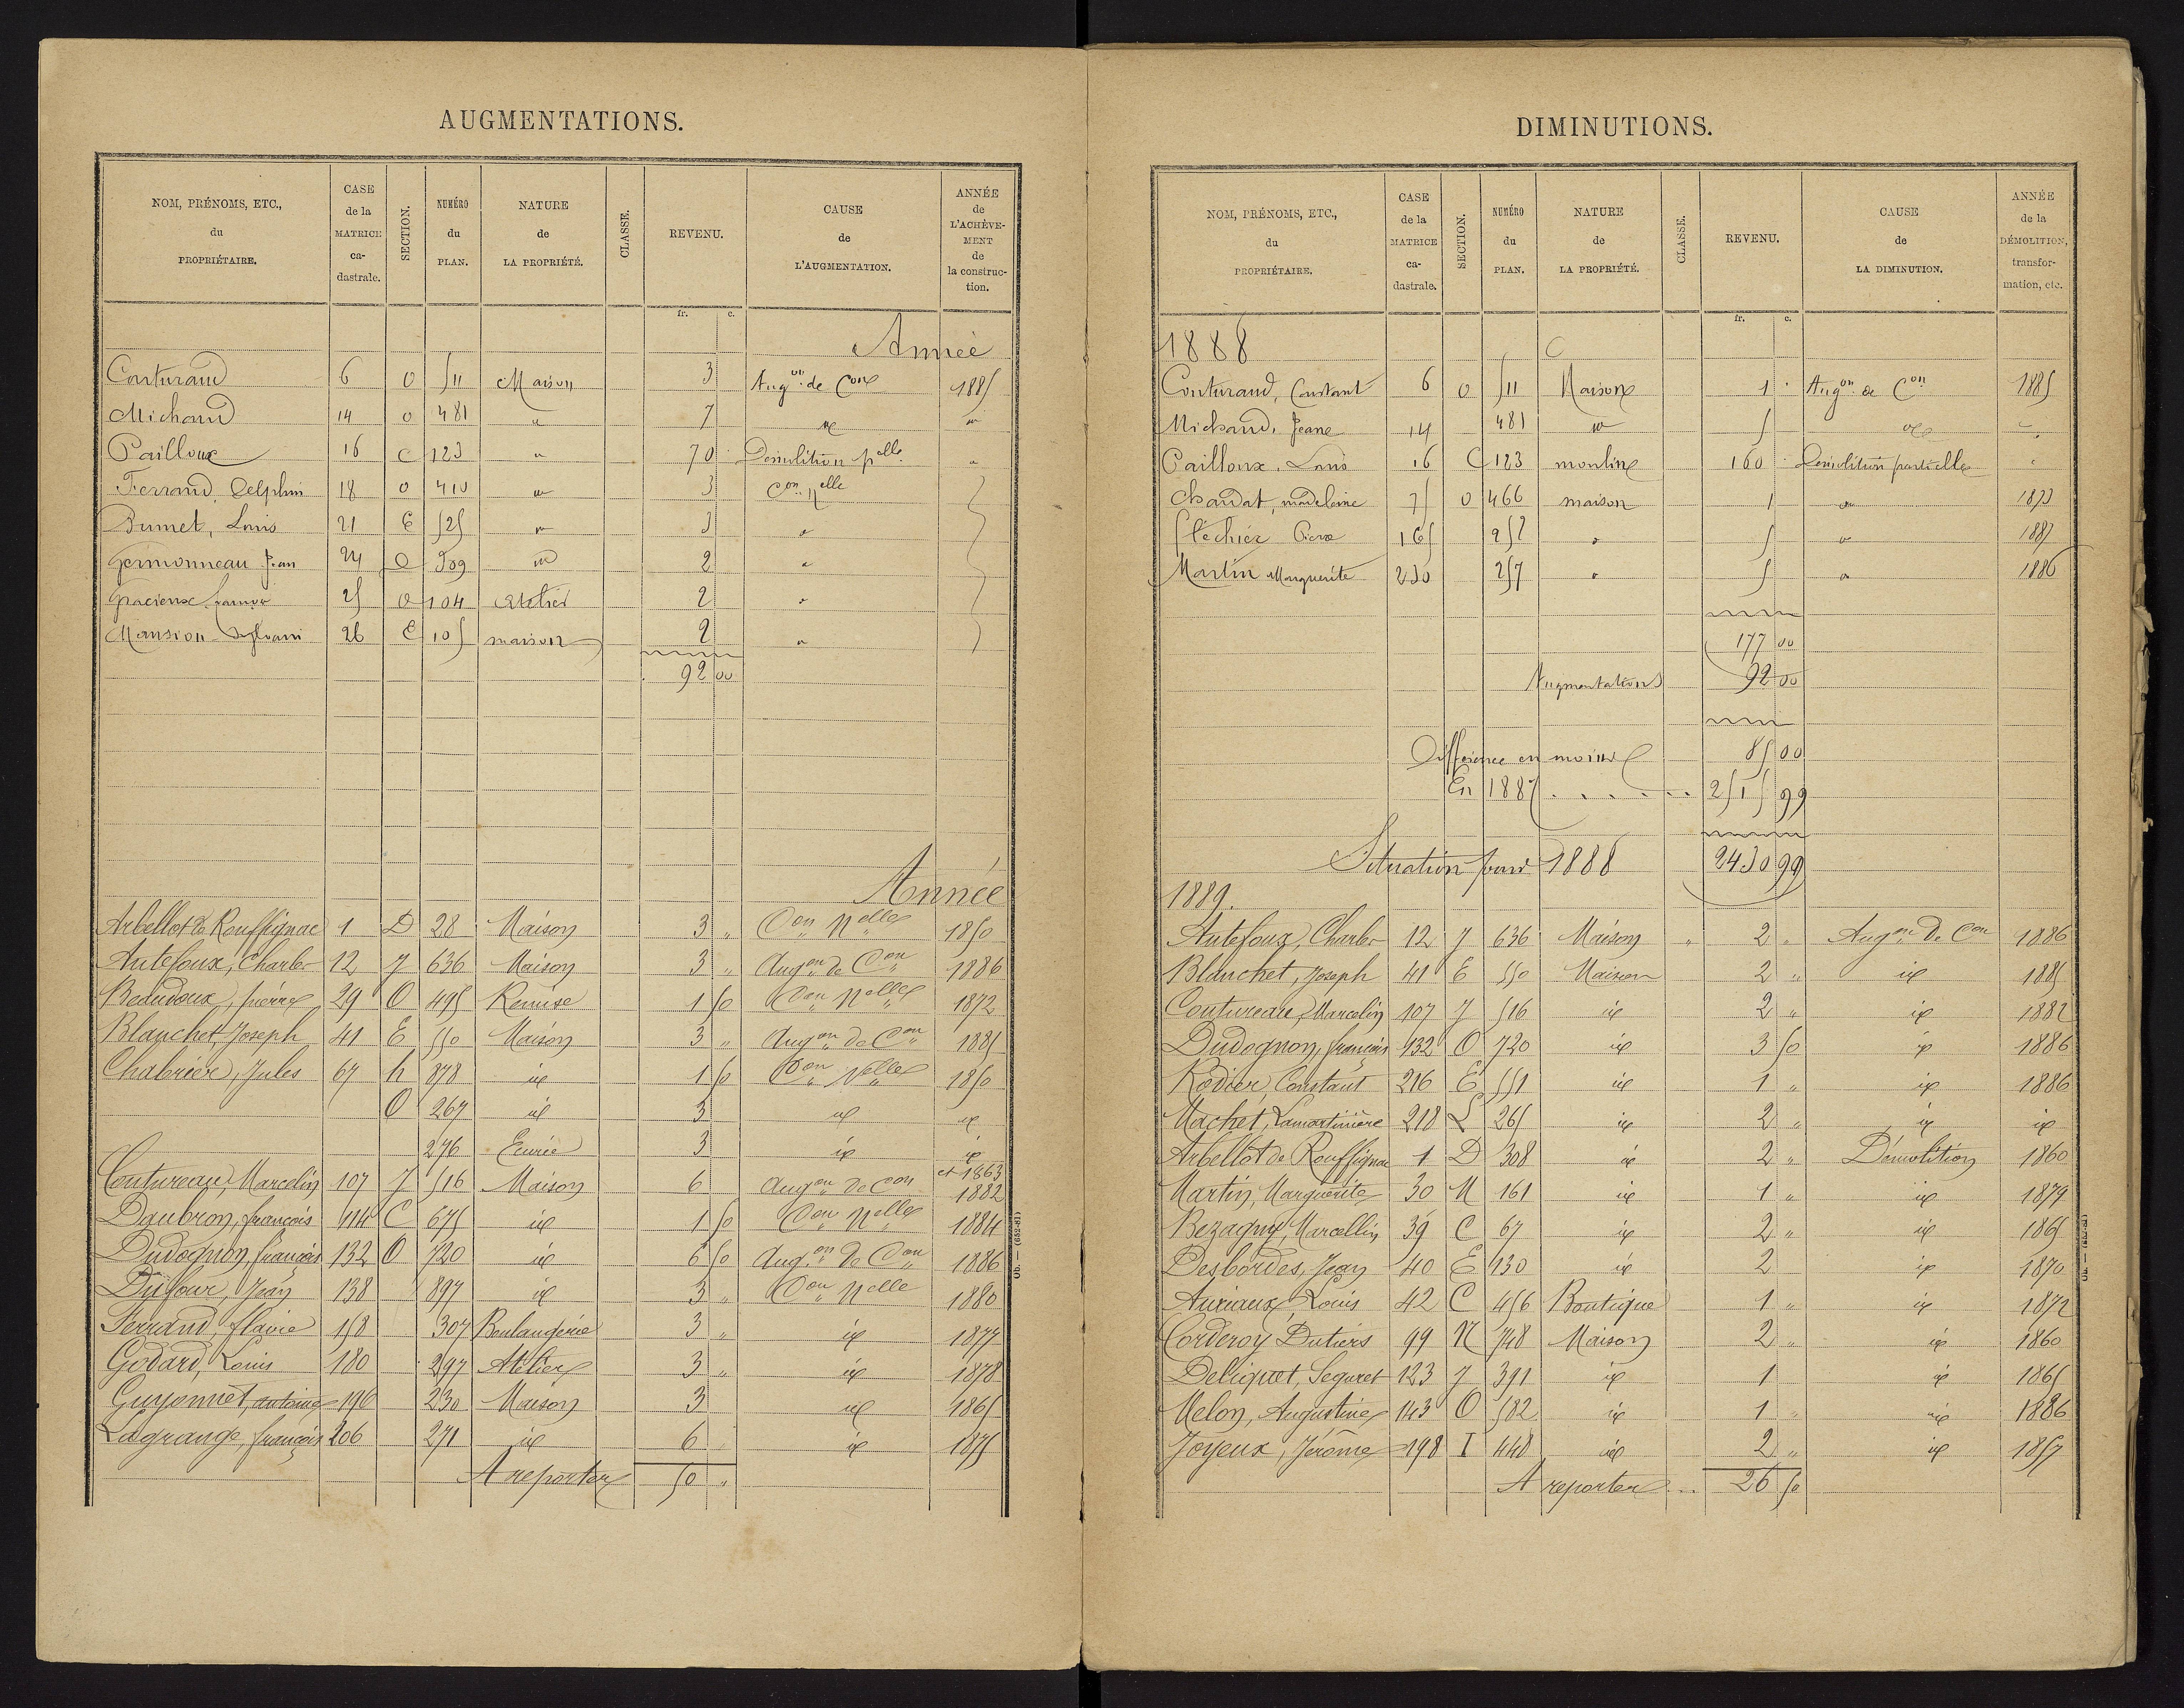 AUGMENTATIONS.
NOM, PRÉNOMS, ETC., du PROPRIÉTAIRE. CASE de la MATRICE ca-dastrale. SECTION. NUMÉRO du PLAN. NATURE de LA PROPRIÉTÉ. CLASSE. REVENU. CAUSE de L'AUGMENTATION. ANNÉE de L'ACHÈVE-MENT de la construc-tion.
fr. c.
Année
Couturaud 6 O 511 Maison 3 Augon de Con 1885
Michaud 14 O 481 " 7 id "
Pailloux 16 C 123 " 70 Démolition pelle "
Ferrand, Delphin 18 O 410 " 3 Con nelle
Dumet, Louis 21 E 525 " 3 "
Germonneau Jean 24 O 509 " 2 "
Gracieux 25 O 104 Atelier 2 "
Mansion Sylvain 26 E 105 maison 2 "
92 00
Année
Arbellot de Rouffignac 1 D 28 Maison 3 " Con nelle 1850
Antefoux, Charles 12 J 636 Maison 3 " Augon de Con 1886
Beaudoux, pierre 29 O 495 Remise 1 50 Con nelle 1872
Blanchet Joseph 41 E 550 Maison 3 " Augon de Con 1885
Chabrier, Jules 67 h 878 id 1 50 Con Nelle 1850
O 267 id 3 id id
276 Ecurie 3 id id
Coutureau, Marcelin 107 J 516 Maison 6 Augon de Con et 1863 1882
Daubron, françois 114 C 675 id 1 50 Con nelle 1884
Dudognon, françois 132 O 720 id 6 50 Augon de Con 1886
Dufour, Jean 138 897 id 3 " Con nelle 1880
Ferrand, flavie 158 307 Boulangerie 3 " id 1877
Godard, Louis 180 297 Atelier 3 " id 1878
Guyonnet, antoine 196 230 Maison 3 id 1865
Lagrange, françois 206 271 id 6 id 1875
A reporter 50 "
Ob. — (652-81)
DIMINUTIONS.
NOM, PRÉNOMS, ETC., du PROPRIÉTAIRE. CASE de la MATRICE ca-dastrale. SECTION. NUMÉRO du PLAN. NATURE de LA PROPRIÉTÉ. CLASSE. REVENU. CAUSE de LA DIMINUTION. ANNÉE de la DÉMOLITION, transfor-mation, etc.
fr. c.
1888
Couturaud, Constant 6 O 511 Maison 1 Augon de Con 1885
Michaud, Jeane 14 481 " 5 id "
Pailloux, Louis 16 C 123 moulin 160 Démolition partielle "
Chaudat, madeleine 75 O 466 maison 1 " 1873
Fléchier Pierre 165 252 " 5 " 1887
Martin Marguerite 230 257 " 5 " 1886
177 00
Augmentations 92 00
Différence en moins 85 00
En 1887 . . . . . . 2515 99
Situation pour 1888 2430 99
1889.
Antefoux, Charles 12 J 636 Maison " 2 " Augon de Con 1886
Blanchet, Joseph 41 E 550 Maison 2 " id 1885
Coutureau, Marcelin 107 J 516 id 2 " id 1882
Dudognon, françois 132 O 720 id 3 50 id 1886
Rodier, Constant 216 E 551 id 1 " id 1886
Machet, Lamartinière 218 L 265 id 2 " id id
Arbellot de Rouffignac 1 D 308 id 2 " Démolition 1860
Martin, Marguerite 30 M 161 id 1 " id 1879
Bezagny, Marcellin 39 C 67 id 2 " id 1865
Desbordes, Jean 40 E 130 id 2 id 1870
Auriaux, Louis 42 C 456 Boutique 1 " id 1872
Corderoy Dutiers 99 N 748 Maison 2 " id 1860
Deliquet, Seguret 123 J 391 id 1 id 1865
Melon, Augustine 143 O 582 id 1 " id 1886
Joyeux, Jérôme 198 I 448 id 2 " id 1857
A reporter ... 26 50
Ob. — (652-81)